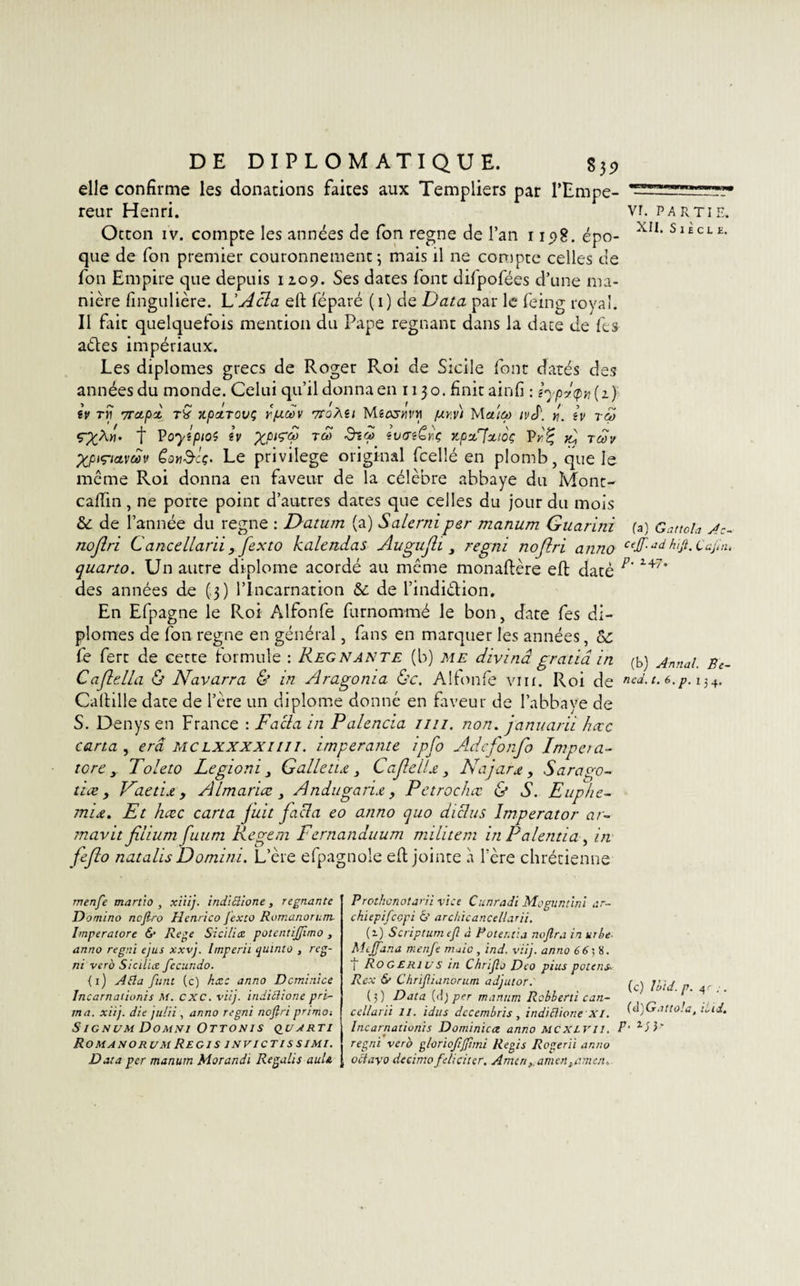 DE DIPLOMATIQUE. 839
elle confirme les donations faites aux Templiers par l'Empe-
reur Henri.
Otton IV. compte les années de son regne de l'an 1198. épo-
que de son premier couronnement; mais il ne compte celles de
son Empire que depuis 1209. Ses dates sont disposées d'une ma-
nière singulière. L'Acta est séparé (1) de Data par le seing royal.
Il fait quelquefois mention du Pape regnant dans la date de ses
actes impériaux.
Les diplomes grecs de Roger Roi de Sicile sont datés des
années du monde. Celui qu'il donna en 1130. finit ainsi : ἐγράφη (2)
ἐν τῇ παρὰ τȣ͂ κράτους ἡμῶν πόλει Μεσσήνῃ μηνὶ Μαίῳ ινδ. η. ἐν τῷ
ϛχλη. † Ρογέριος ἐν χριϛῷ τῷ Θεῷ εὐσεϐὴς κραταιὸς Ρὴξ κ̀ τῶν
χριϛιανῶν ϐοηθός. Le privilege original scellé en plomb, que le
même Roi donna en faveur de la célèbre abbaye du Mont-
cassin, ne porte point d'autres dates que celles du jour du mois
& de l'année du regne : Datum (a) Salerni per manum Guarini
nostri Cancellarii, sexto kalendas Augusti, regni nostri anno
quarto. Un autre diplome acordé au même monastère est daté
des années de (3) l'Incarnation & de l'indiction.
En Espagne le Roi Alfonse surnommé le bon, date ses di-
plomes de son regne en général, sans en marquer les années, &
se sert de cette formule : REGNANTE (b) ME divinâ gratiâ in
Castella & Navarra & in Aragonia &c. Alfonse VIII. Roi de
Castille date de l'ère un diplome donné en faveur de l'abbaye de
S. Denys en France : Facta in Palencia IIII. non. januarii hæc
carta, erâ MCLXXXXIIII. imperante ipso Adefonso Impera-
tore, Toleto Legioni, Galletiæ, Castellæ, Najaræ, Sarago-
tiæ, Vaetiæ, Almariæ, Andugariæ, Petrochæ & S. Euphe-
miæ. Et hæc carta fuit facta eo anno quo dictus Imperator ar-
mavit filium suum Regem Fernanduum militem in Palentia, in
festo natalis Domini. L'ère espagnole est jointe à l'ère chrétienne
VI. PARTIE.
XII. SIÈCLE.
(a) Gattola Ac-
cess. ad hist. Casin.
p. 247.
(b) Annal. Be-
ned. t. 6. p. 134.
mense martio, xiiij. indictione, regnante
Domino nostro Henrico sexto Romanorum
Imperatore & Rege Siciliæ potentissimo,
anno regni ejus xxvj. Imperii quinto, reg-
ni verò Siciliæ secundo.
(1) Acta sunt (c) hæc anno Dominice
Incarnationis M. CXC. viij. indictione pri-
ma. xiij. die julii, anno regni nostri primo:
SIGNUM DOMNI OTTONIS QUARTI
ROMANORUM REGIS INVICTISSIMI.
Data per manum Morandi Regalis aulæ
Prothonotarii vice Cunradi Moguntini ar-
chiepiscopi & archicancellarii.
(2) Scriptum est à Potentia nostra in urbe
Messana mense maio, ind. viij. anno 6638.
† ROGERIUS in Christo Deo pius potens
Rex & Christianorum adjutor.
(3) Data (d) per manum Robberti can-
cellarii II. idus decembris, indictione XI.
Incarnationis Dominicæ anno MCXLVII.
regni verò gloriosissimi Regis Rogerii anno
octavo decimo feliciter. Amen, amen, amen.
(c) Ibid. p.
(d) Gattola, ibid.
p. 253.